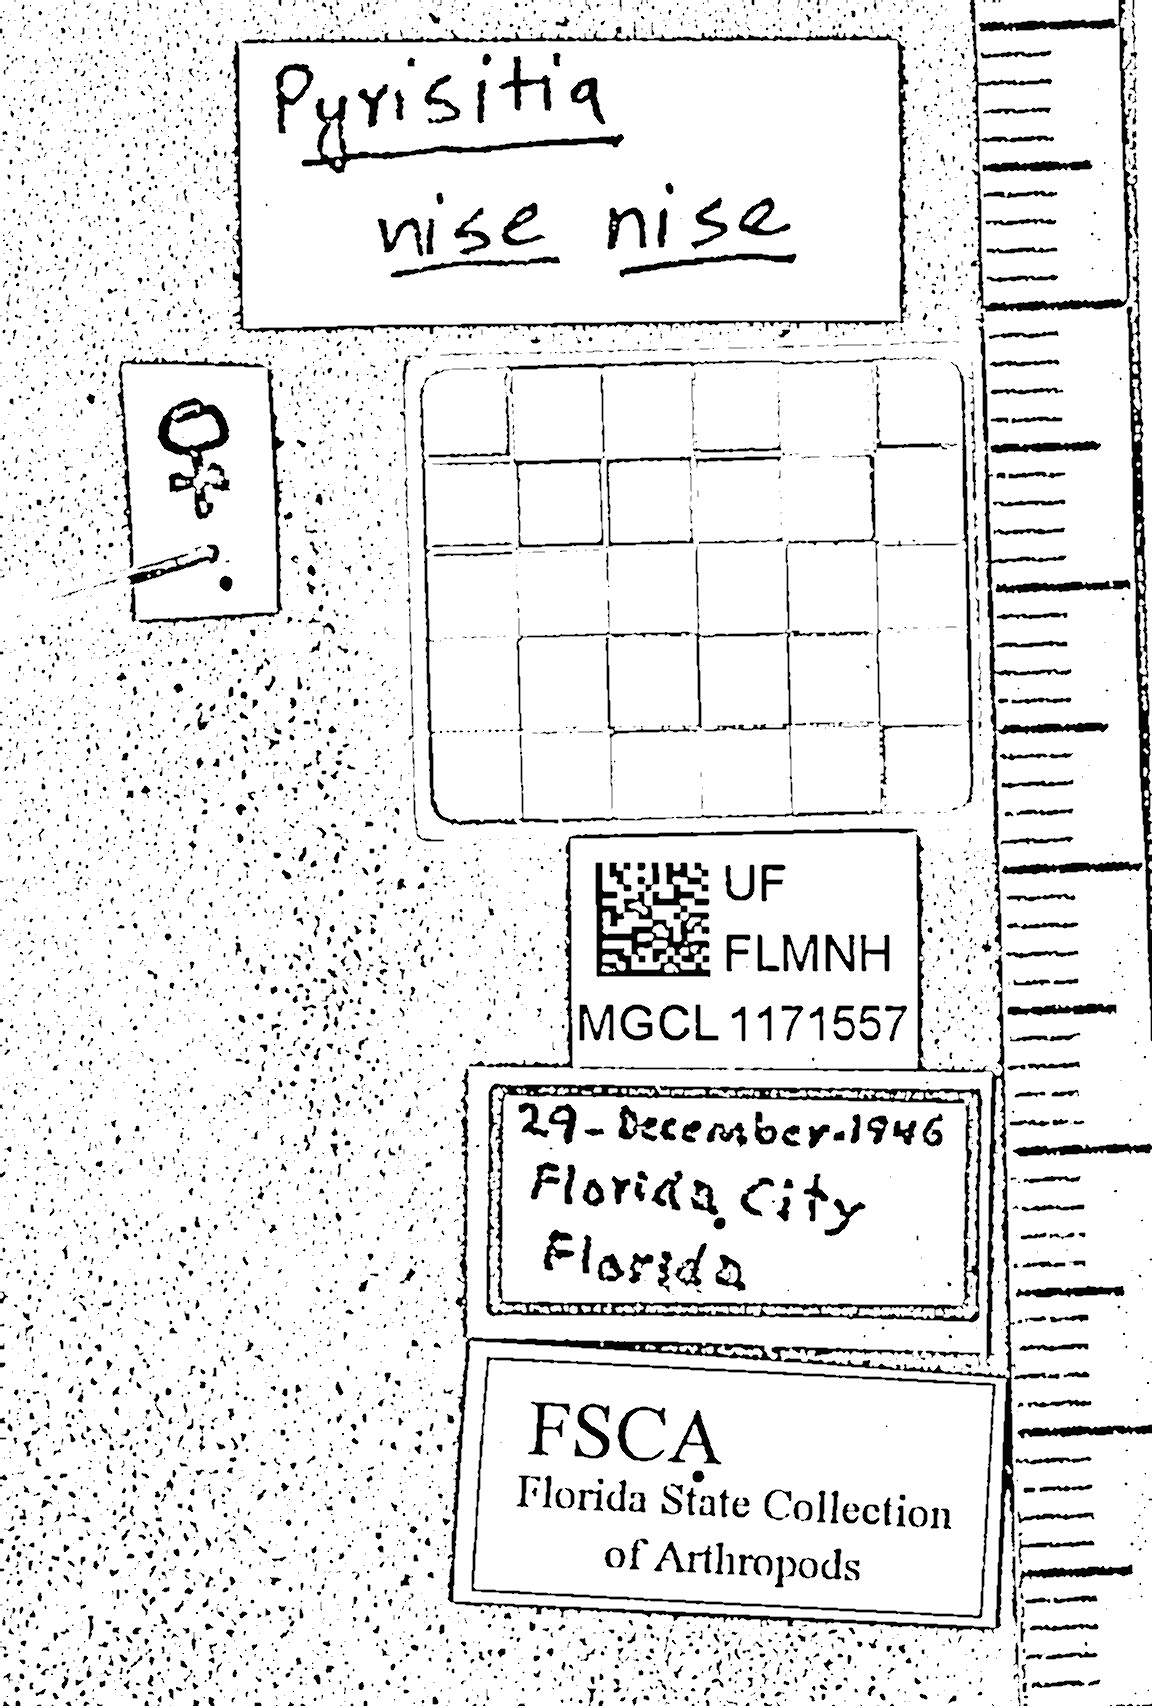 Pyrisitia
nise nise
♀
UF
FLMNH
MGCL 1171557
29-December-1946
Florida City
Florida
FSCA
Florida State Collection
of Arthropods